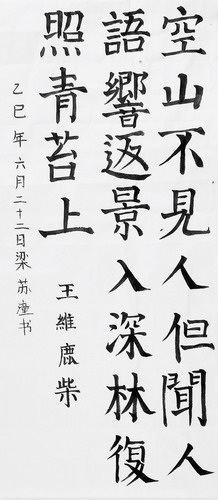 空山不見人但聞人
語響返景入深林復
照青苔上
王維鹿柴
乙巳年六月二十二日梁苏童书